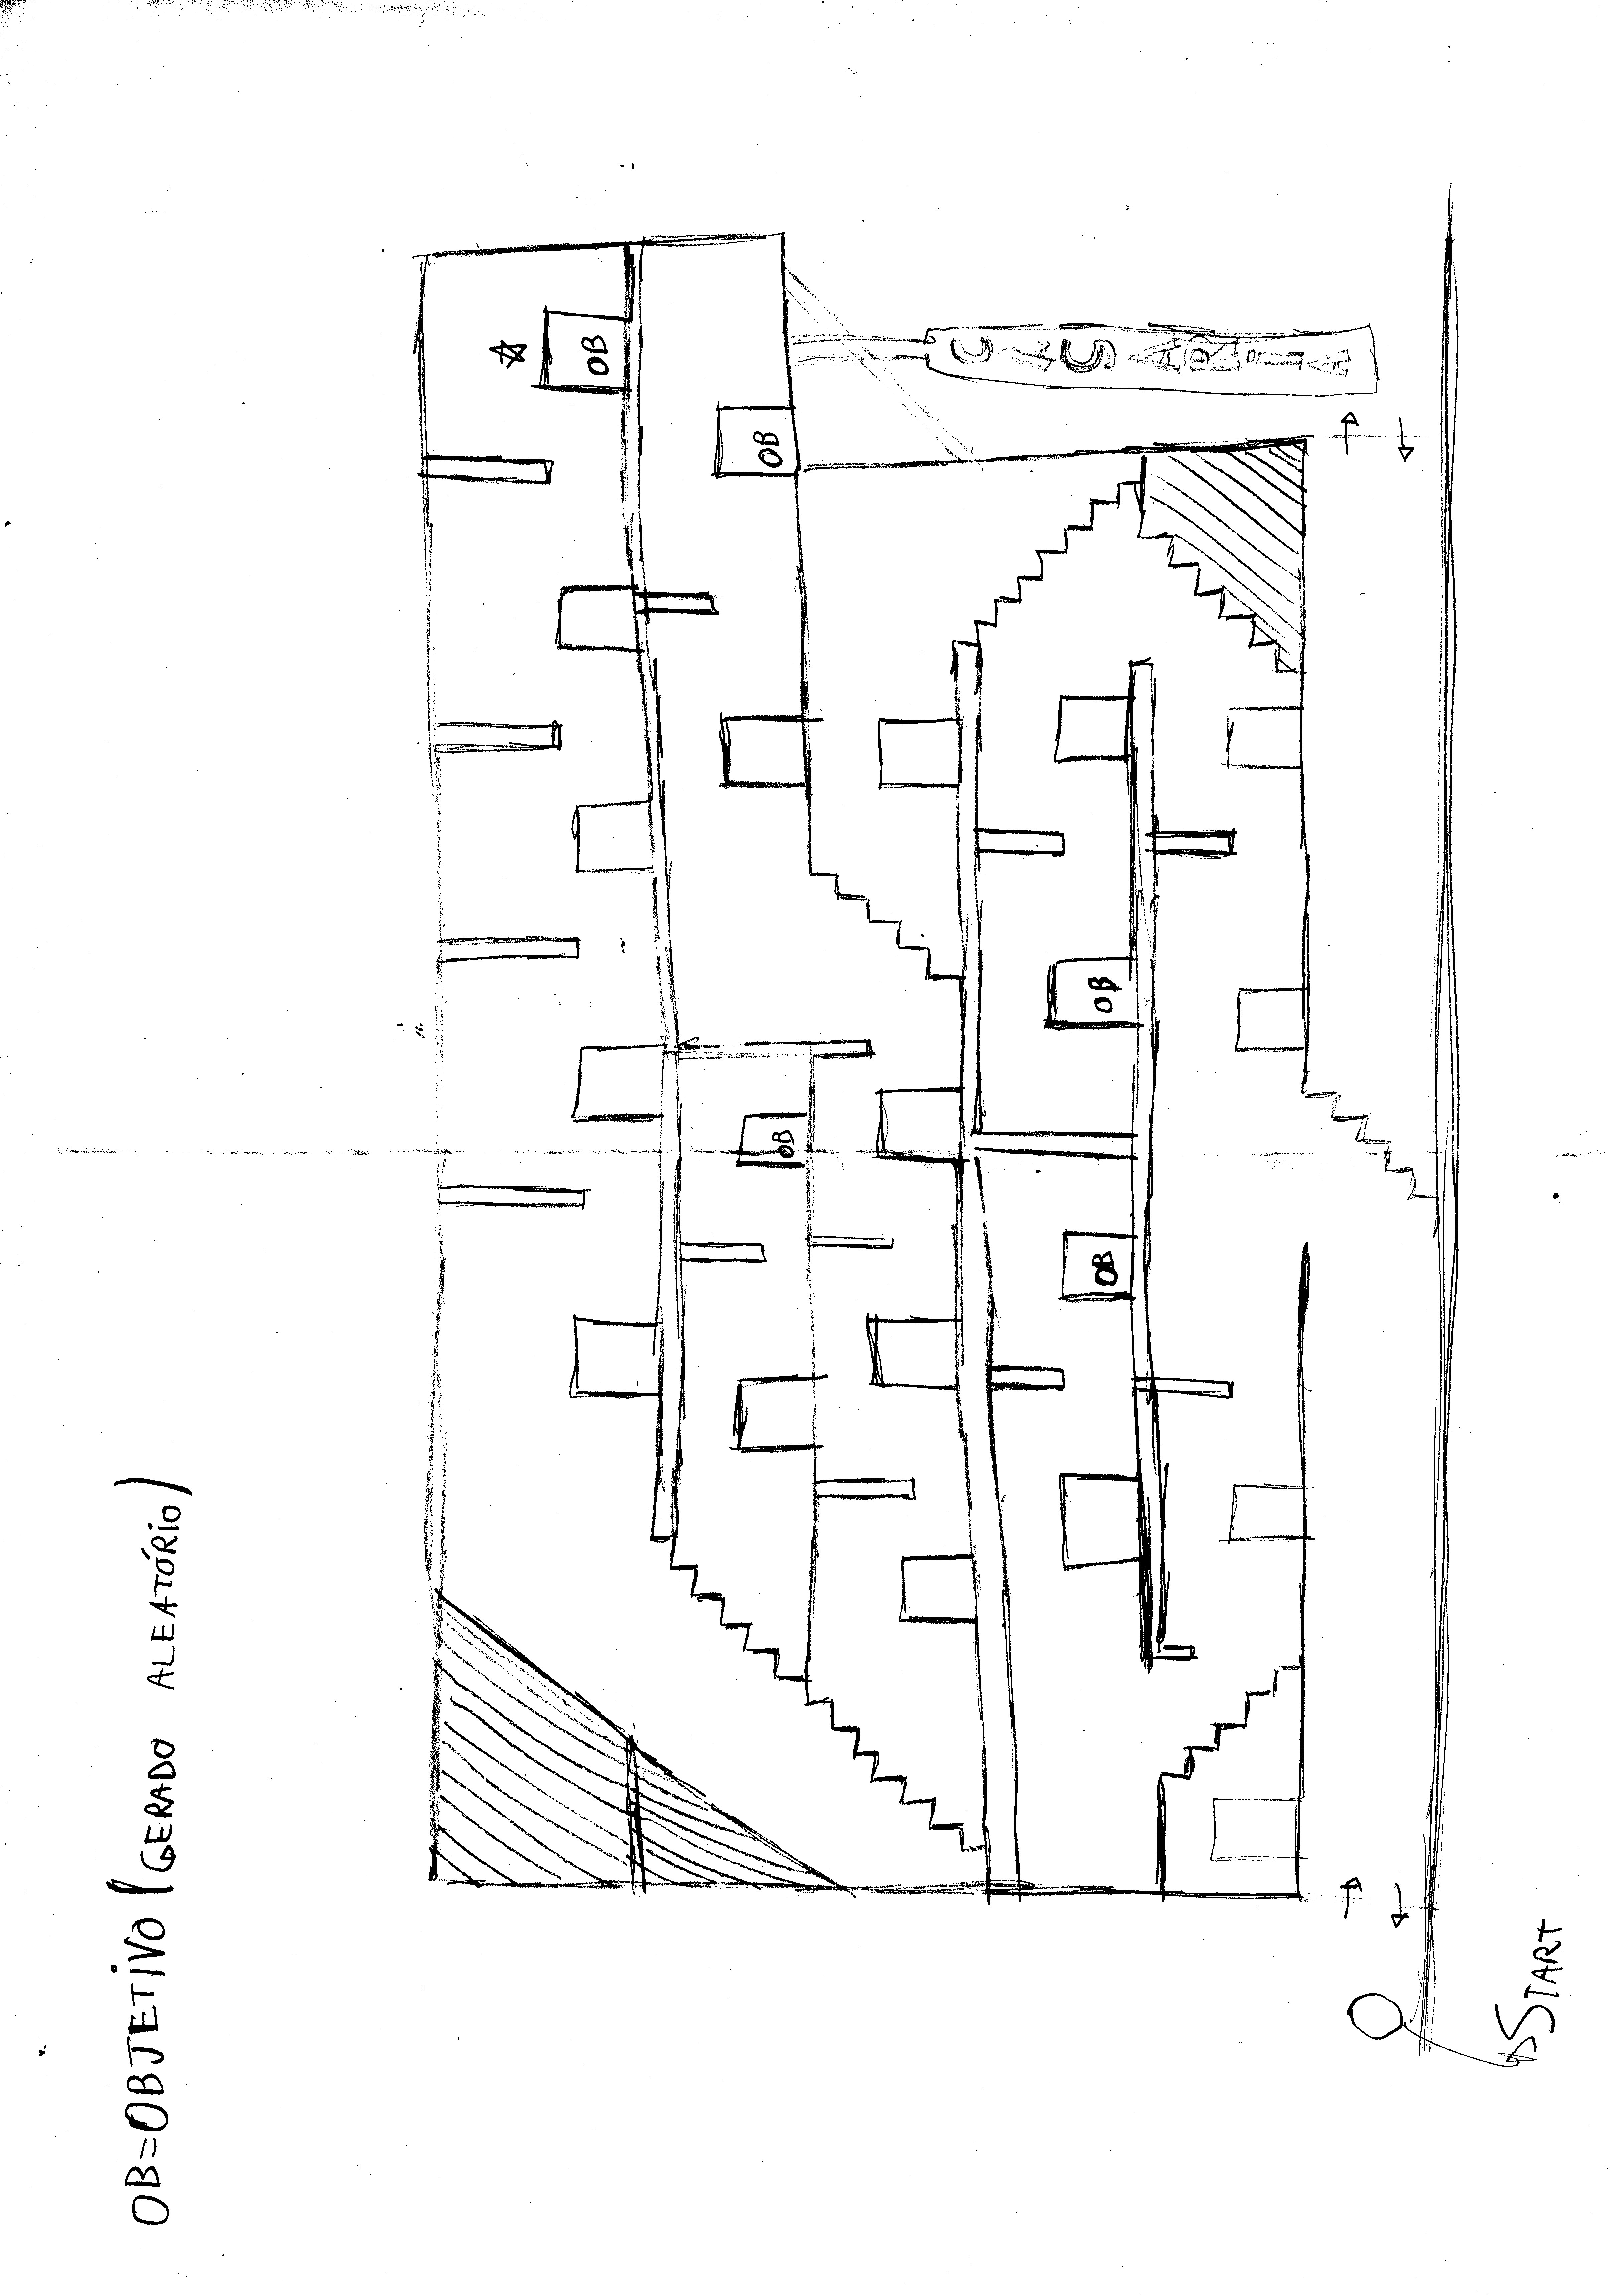 OB=OBJETIVO (GERADO ALEATÓRIO)
OB
OB
OB
CASARIA
OB
OB
START